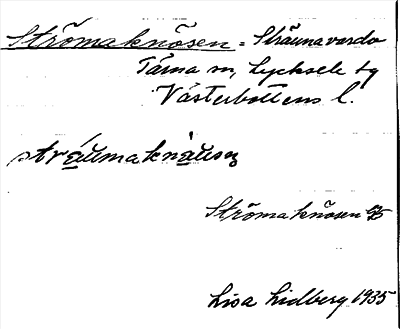 Strömaknösen = Strauna vardo
Tärna sn, Lycksele tg
Västerbottens l.
stráumaknàusn̥
Strömaknösen GS
Lisa Lidberg 1935